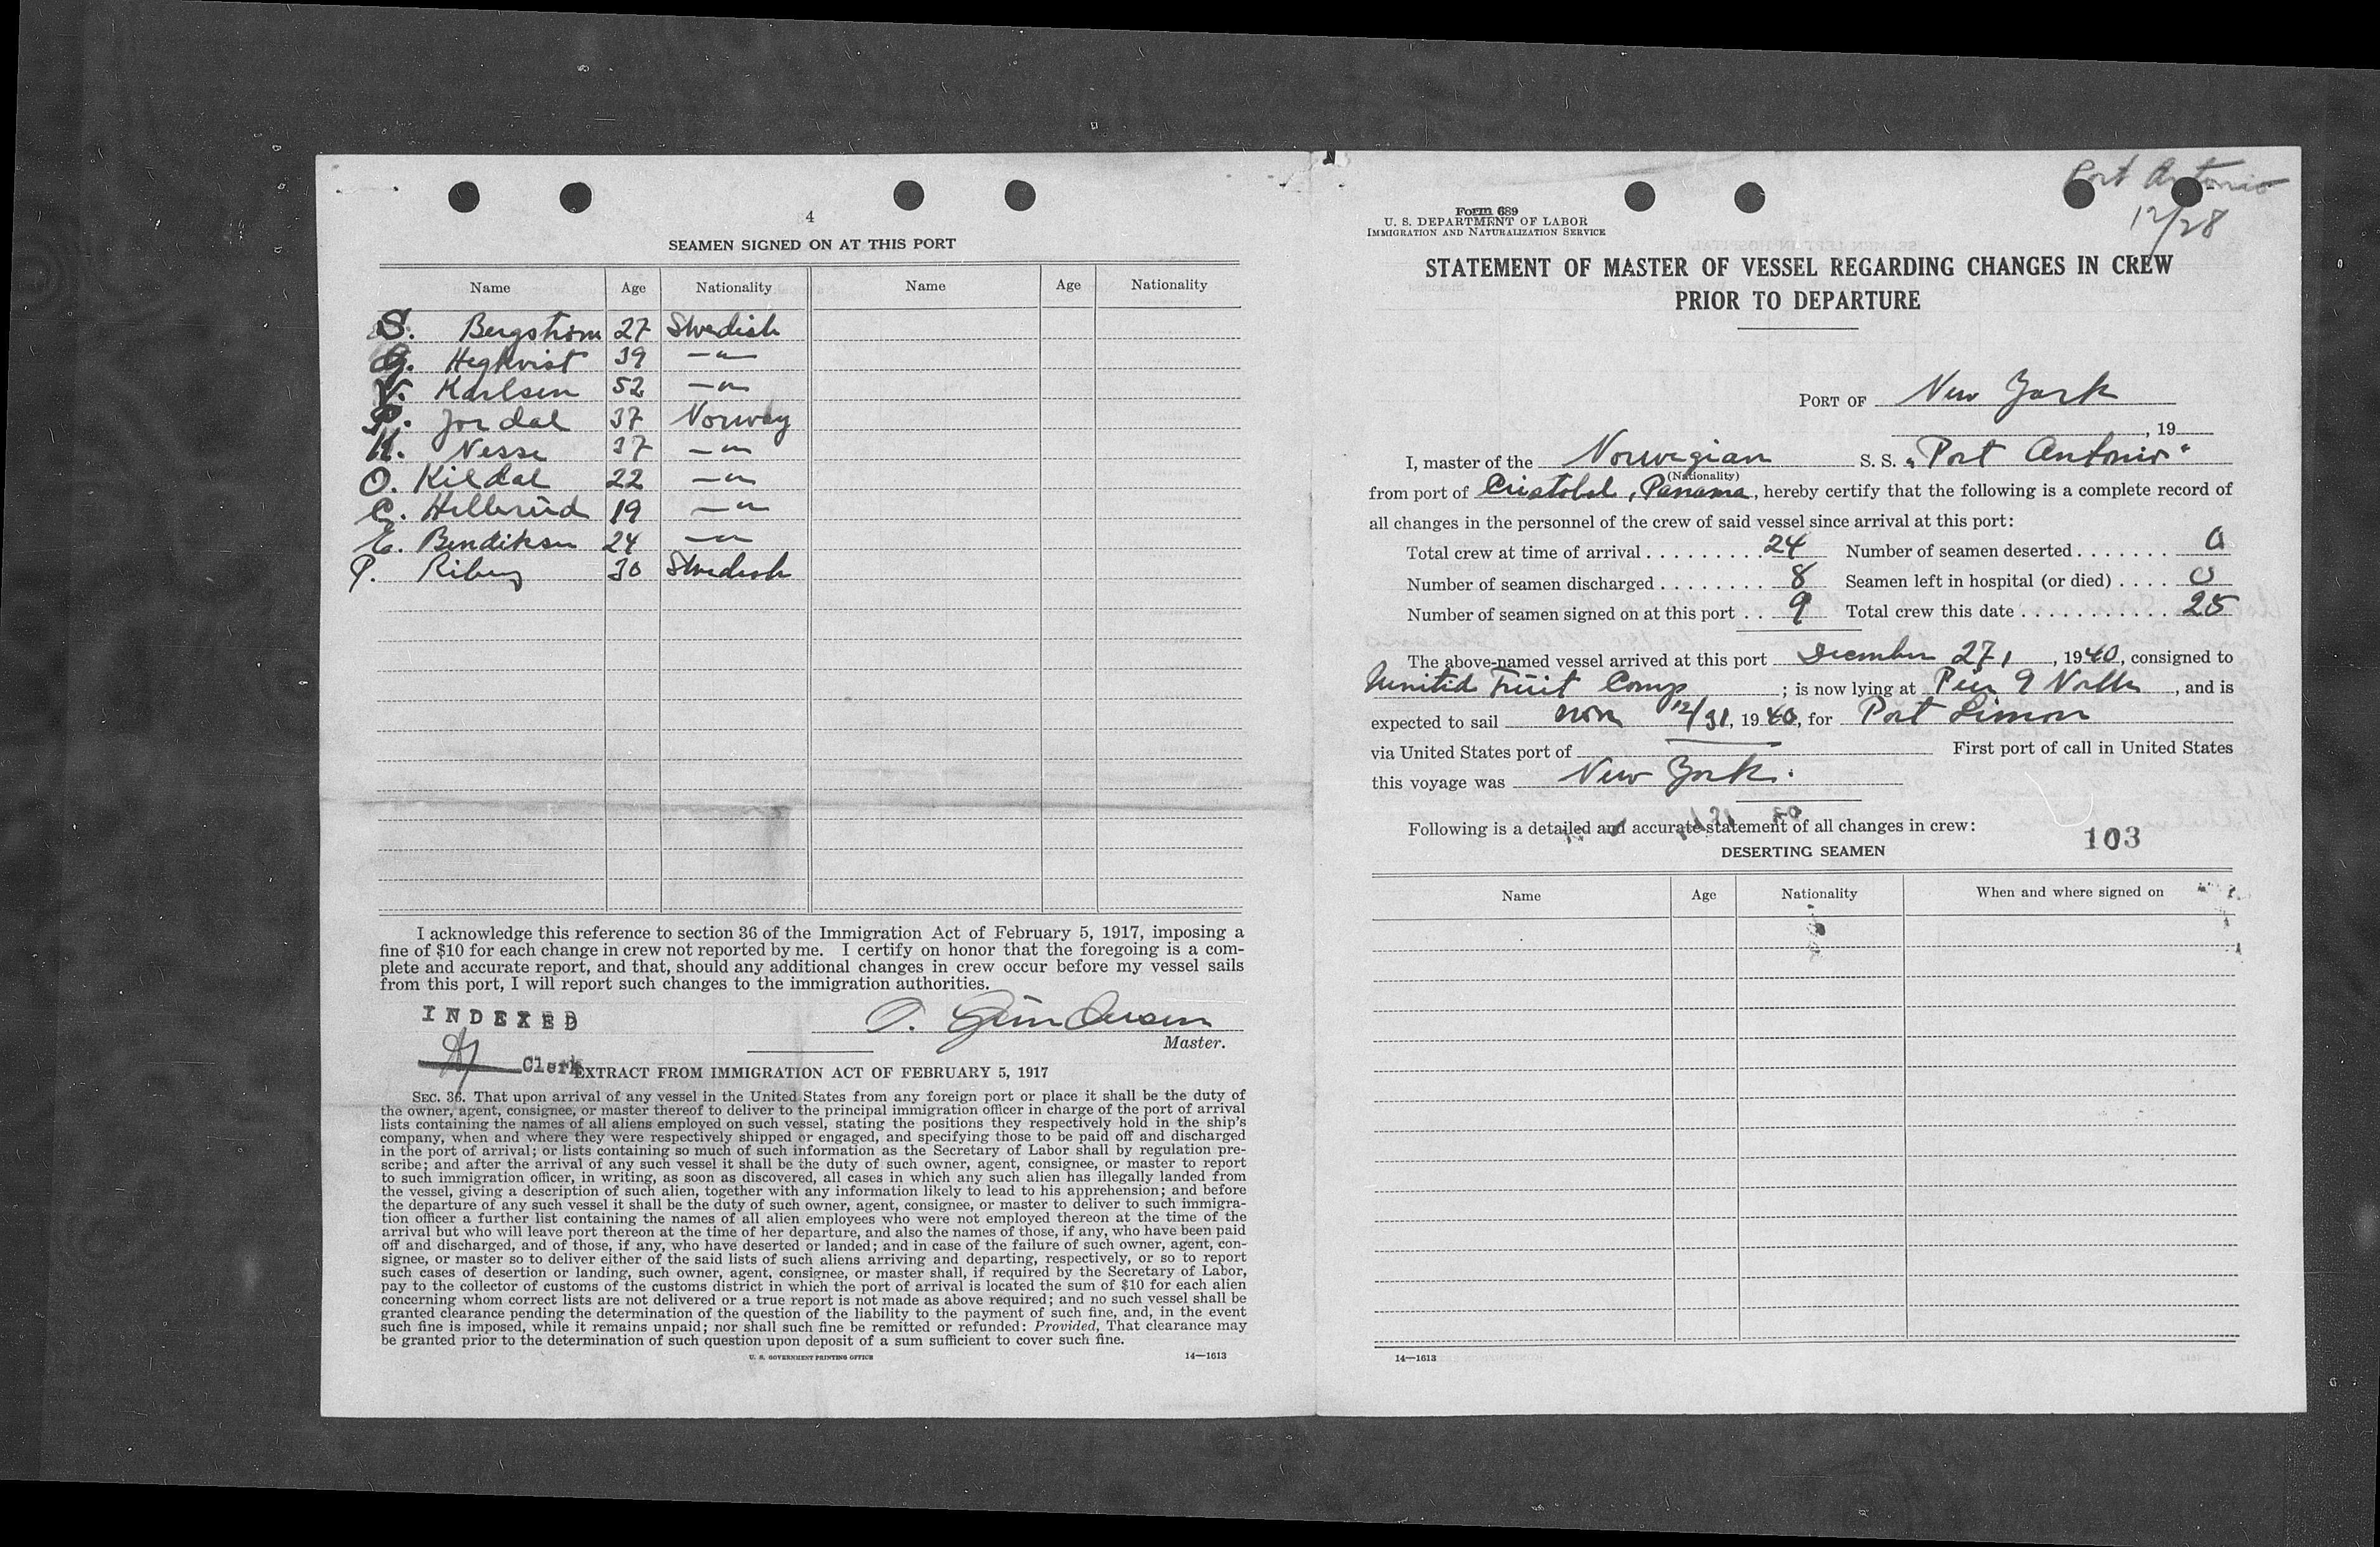 4
SEAMEN SIGNED ON AT THIS PORT
Name Age Nationality Name Age Nationality
S. Bergstrom 27 Swedish
G. Hegkvist 39 —"—
V. Karlsen 52 —"—
P. Jordal 37 Norway
H. Nesse 37 —"—
O. Kildal 22 —"—
C. Hillerud 19 —"—
E. Bendiksen 24 —"—
P. Riberg 30 Swedish
I acknowledge this reference to section 36 of the Immigration Act of February 5, 1917, imposing a
fine of $10 for each change in crew not reported by me. I certify on honor that the foregoing is a com-
plete and accurate report, and that, should any additional changes in crew occur before my vessel sails
from this port, I will report such changes to the immigration authorities.
INDEXED
Master.
Clerk
EXTRACT FROM IMMIGRATION ACT OF FEBRUARY 5, 1917
SEC. 36. That upon arrival of any vessel in the United States from any foreign port or place it shall be the duty of
the owner, agent, consignee, or master thereof to deliver to the principal immigration officer in charge of the port of arrival
lists containing the names of all aliens employed on such vessel, stating the positions they respectively hold in the ship's
company, when and where they were respectively shipped or engaged, and specifying those to be paid off and discharged
in the port of arrival; or lists containing so much of such information as the Secretary of Labor shall by regulation pre-
scribe; and after the arrival of any such vessel it shall be the duty of such owner, agent, consignee, or master to report
to such immigration officer, in writing, as soon as discovered, all cases in which any such alien has illegally landed from
the vessel, giving a description of such alien, together with any information likely to lead to his apprehension; and before
the departure of any such vessel it shall be the duty of such owner, agent, consignee, or master to deliver to such immigra-
tion officer a further list containing the names of all alien employees who were not employed thereon at the time of the
arrival but who will leave port thereon at the time of her departure, and also the names of those, if any, who have been paid
off and discharged, and of those, if any, who have deserted or landed; and in case of the failure of such owner, agent, con-
signee, or master so to deliver either of the said lists of such aliens arriving and departing, respectively, or so to report
such cases of desertion or landing, such owner, agent, consignee, or master shall, if required by the Secretary of Labor,
pay to the collector of customs of the customs district in which the port of arrival is located the sum of $10 for each alien
concerning whom correct lists are not delivered or a true report is not made as above required; and no such vessel shall be
granted clearance pending the determination of the question of the liability to the payment of such fine, and, in the event
such fine is imposed, while it remains unpaid; nor shall such fine be remitted or refunded: Provided, That clearance may
be granted prior to the determination of such question upon deposit of a sum sufficient to cover such fine.
U. S. GOVERNMENT PRINTING OFFICE 14—1613
Port Antonio
12/28
Form 689
U. S. DEPARTMENT OF LABOR
IMMIGRATION AND NATURALIZATION SERVICE
STATEMENT OF MASTER OF VESSEL REGARDING CHANGES IN CREW
PRIOR TO DEPARTURE
PORT OF New York
, 19
I, master of the Norwegian S. S. "Port Antonio"
(Nationality)
from port of Cristobal, Panama, hereby certify that the following is a complete record of
all changes in the personnel of the crew of said vessel since arrival at this port:
Total crew at time of arrival . . . . . . . . . 24 Number of seamen deserted . . . . . . . 0
Number of seamen discharged . . . . . . . . 8 Seamen left in hospital (or died) . . . . 0
Number of seamen signed on at this port . . 9 Total crew this date . . . . . . . . . . . . 25
The above-named vessel arrived at this port December 27, , 1940, consigned to
United Fruit Comp ; is now lying at Pier 9 North , and is
expected to sail noon 12/31, 1940, for Port Limon
via United States port of First port of call in United States
this voyage was New York.
Following is a detailed and accurate statement of all changes in crew:
103
DESERTING SEAMEN
Name Age Nationality When and where signed on
14—1613